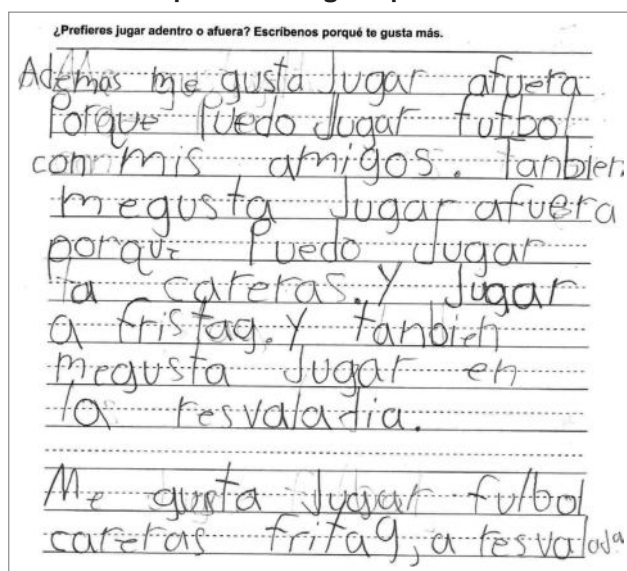 ¿Prefieres jugar adentro o afuera? Escríbenos porqué te gusta más.
Ademas me gusta Jugar afuera
Porque Puedo Jugar futbol
con mis amigos. Tanbien
megusta Jugar afuera
porque Puedo Jugar
a careras. Y Jugar
a fristag. Y tanbien
megusta Jugar en
la resvaladia.
Me gusta Jugar futbol
careras fritag, a resvalada